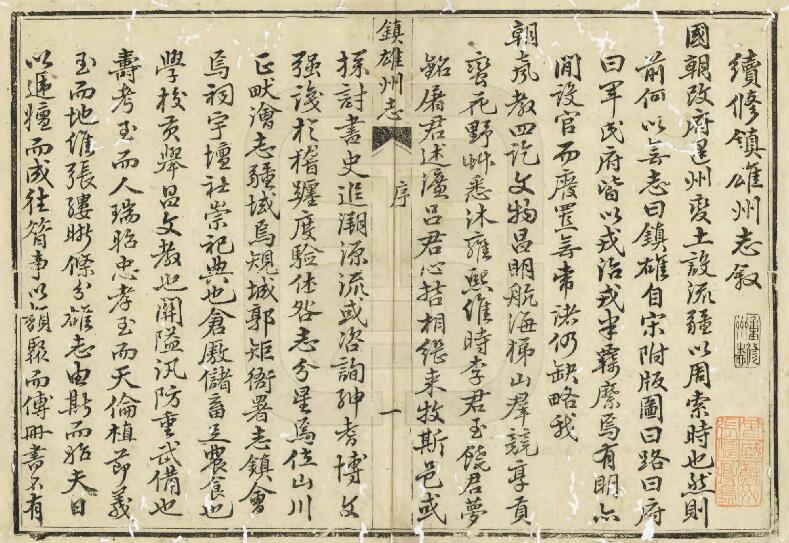 續修鎮雄州志叙
國朝改府還州變土設流疆以周索時也然則
前何以無志曰鎮雄自宋附版圖曰路曰府
曰軍民府皆以戎治戎半羈縻焉有明亦
間設官而廢置無常諸仍缺略我
朝聲教四訖文物昌明航海梯山羣競享貢
蠻花野艸悉沐雍熙維時李君至饒君夢
銘屠君述濂呂君心拮相繼来牧斯邑或
鎮雄州志
序
一
探討書史追溯源流或咨詢紳耆博文
强識於稽躔度驗休咎志分星焉位山川
正畎澮志疆域焉規城郭矩衙署志鎮會
焉祠宇壇社崇祀典也倉厫儲畜足農食也
學校貢舉昌文教也關隘汛防重武備也
壽考至而人瑞昭忠孝至而天倫植節義
至而地維張縷晰條分雄志由斯而昭夫日
以遞嬗而成往籍事以類聚而傳冊書不有